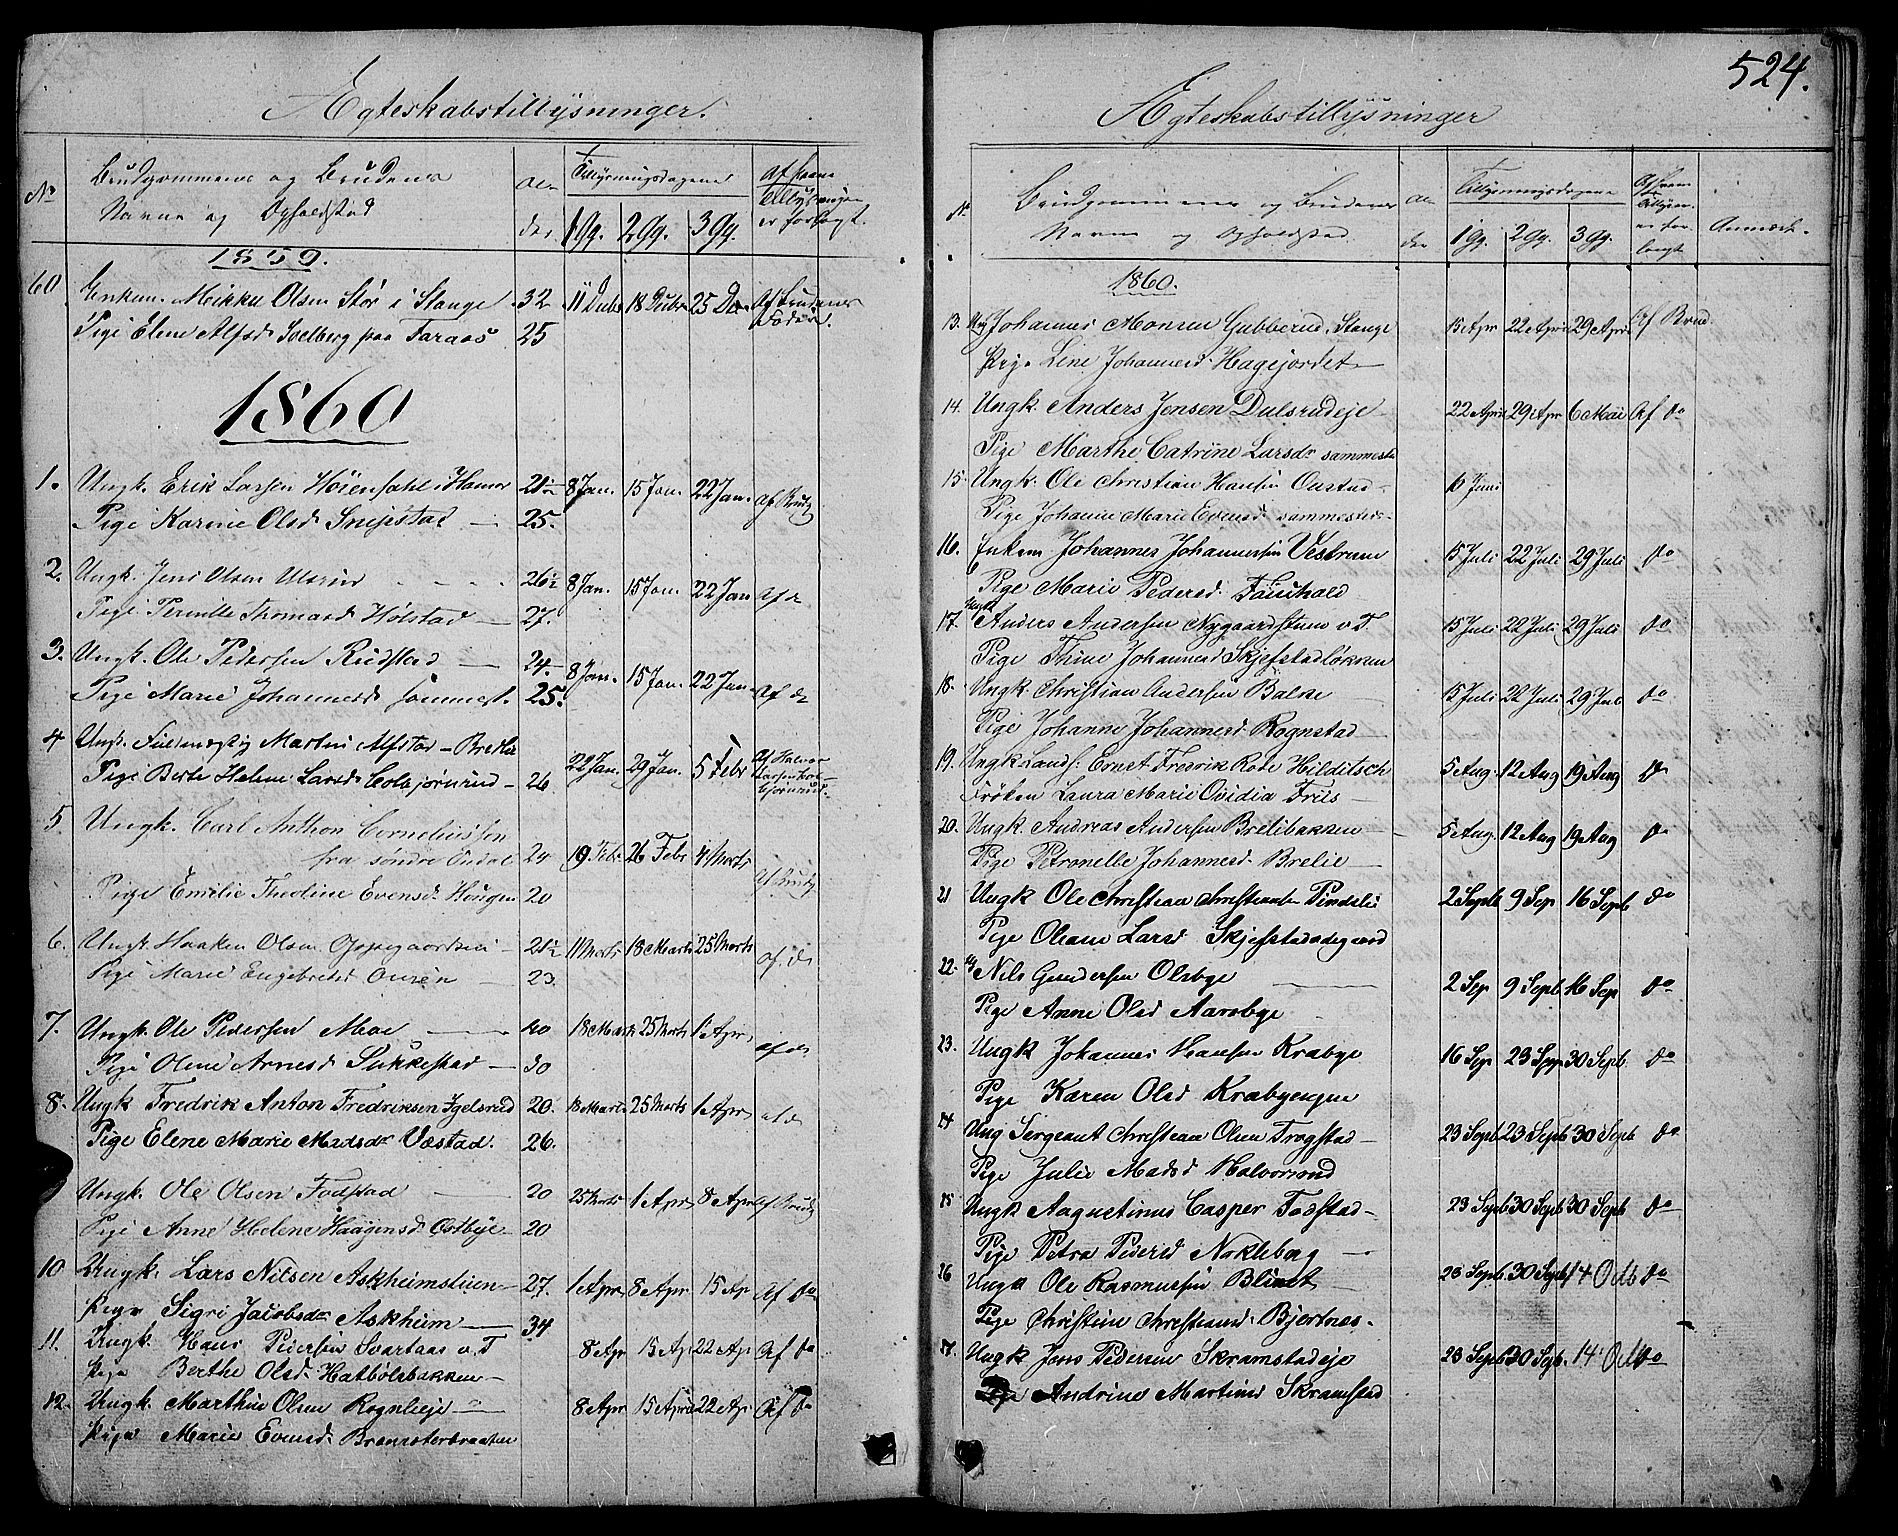 Egteskabstillysninger.
No Brudgommens og Brudens Navne og Opholdsted Al- der Tillysningsdagene 1 Gg. 2 Gg. 3 Gg. Af hvem Tillysningen er forlangt.
1859.
60 Enkem. Mikkel Olsen Stør i Stange 32 11 Debr 18 Debr 25 De Af Brudens Fader.
Pige Elene Alfsd Solberg paa Taraas 25
1860
1. Ungk. Erik Larsen Høiensahl i Hamar 21½ 8 Jan. 15 Jan. 22 Jan. Af Brudg
Pige Karine Olsd Snejstad 25.
2. Ungk. Jens Olsen Ulsrud 26½ 8 Jan. 15 Jan. 22 Jan Af do
Pige Pernille Thomasd Holstad 27.
3. Ungk. Ole Pedersen Rudstad 24. 8 Jan. 15 Jan. 22 Jan. Af do
Pige Marie Johannesd sammest. 25.
4 Ungk. Martin Alfstad 22 Jan. 29 Jan. 5 Febr Af Halvor Larsen Kolbjørnrud
Pige Berte Helene Larsd. Colbjørnrud 26
5. Ungk. Carl Anthon Corneliussen
fra søndre Ondal 24 19 Febr 26 Febr 4 Marts Af Brudg
Pige Emilie Theoline Evensd. Haugen 20
6. Ungk. Haaken Olsen Opsegaardseie 21½ 11 Marts 18 Marts 25 Marts af. do
Pige Marie Engebretsd Ouren 23.
7. Ungk. Ole Pedersen Moe 20 18 Marts 25 Marts 1 Apr. af do
Pige Olene Arnesd Sukkestad 30
8. Ungk Fredrik Anton Fredriksen Igelsrud 20. 18 Marts 25 Marts 1 Apr. af do
Pige Elene Marie Madsdr Væstad. 26.
Ungk. Ole Olsen Fodstad 20 25 Marts 1 Apr 8 Apr Af Brudg
Pige Anne Helene Haagensd Østbye 20
10 Ungk. Lars Nilsen Askheimstuen 27. 1 Apr. 8 Apr 15 Ap Af do
Pige Sigri Jacobsdr Askheim 34
11. Ungk. Hans Pedersen Svartaas v. T 8 Apr 15 Ap 22 Ap Af do
Pige Berthe Olsd. Hatbølsbakken
12. Ungk. Marthin Olsen Rognlieje 8 Apr 15 Apr 22 Ap Af do
Pige Marie Evensd. Brenneterbraaten
524.
Egteskabstillysninger
N. Brudgommenes og Brudenes Navne og Opholdsted. Al der Tillysningsdagene 1 Gg. 2 Gg. 3 Gg. Af hvem Tillysn. er forlangt Anmærk.
1860.
13. Ung Johannes Monsen Gubberud, Stange 15 Apr 22 Apr 29 Apr Af Brud.
Pige Line Johannesd. Hagejordet
14. Ungk. Anders Jensen Dulsrudeje 22 Apr 29 Apr 6 Mai Af do
Pige Marthe Catrine Larsdr sammeste
15. Ungk. Ole Christian Hansen Oustad 10 Juni
Pige Johanne Marie Evensd. sammesteds
16. Enkem Johannes Johannessen Vestrum 15 Juli 22 Juli 29 Juli do
Pige Marie Pedersd. Fauchald
17. Ungk Anders Andersen Nygaardstuen v. T. 15 Juli 22 Juli 29 Juli do
Pige Thine Johannesd Skjefstadløkken
18. Ungk. Christian Andersen Balke 15 Juli 22 Juli 29 Jul do
Pige Johanne Johannesd. Rognstad
19. Ungk. Landh. Ernst Fredrik Rode Hilditsch 5 Aug. 12 Aug 19 Aug do
Frøken Laura Marie Ovidia Friis
20. Ungk. Andreas Andersen Brelibakken 5 Aug. 12 Aug 19 Aug do
Pige Petronelle Johannesd. Brelie
21 Ungk Ole Christian Christiansen Pindelie 2 Septb 9 Sep 16 Septb do
Pige Oleane Larsd Skjefstadødegaard
22. Nils Gundersen Olsbye 2 Sep 9 Septb 16 Sep do
Pige Anne Olsd Aarsbye
23. Ungk Johannes Hansen Krabye 16 Sep 23 Sep 30 Septb. do
Pige Karen Olsd Krabyengen
24 Ung Sergeant Christian Olsen Trogstad 23 Septb 23 Septb 30 Septb do
Pige Julie Madsd Halvorsrud
25 Ungk Augustinus Casper Fodstad 23 Septb 30 Septb 30 Septb do
Pige Petra Pedersd Nøkleborg
26 Ungk Ole Rasmussen Blixet 23 Septb 30 Septb 14 Octb do
Pige Christine Christiansd. Bjørtnæs.
27. Ungk Jens Pedersen Skramstadeje 23 Septb 30 Septb. 14 Octb do
Pige Andrine Martinsd Skramstad